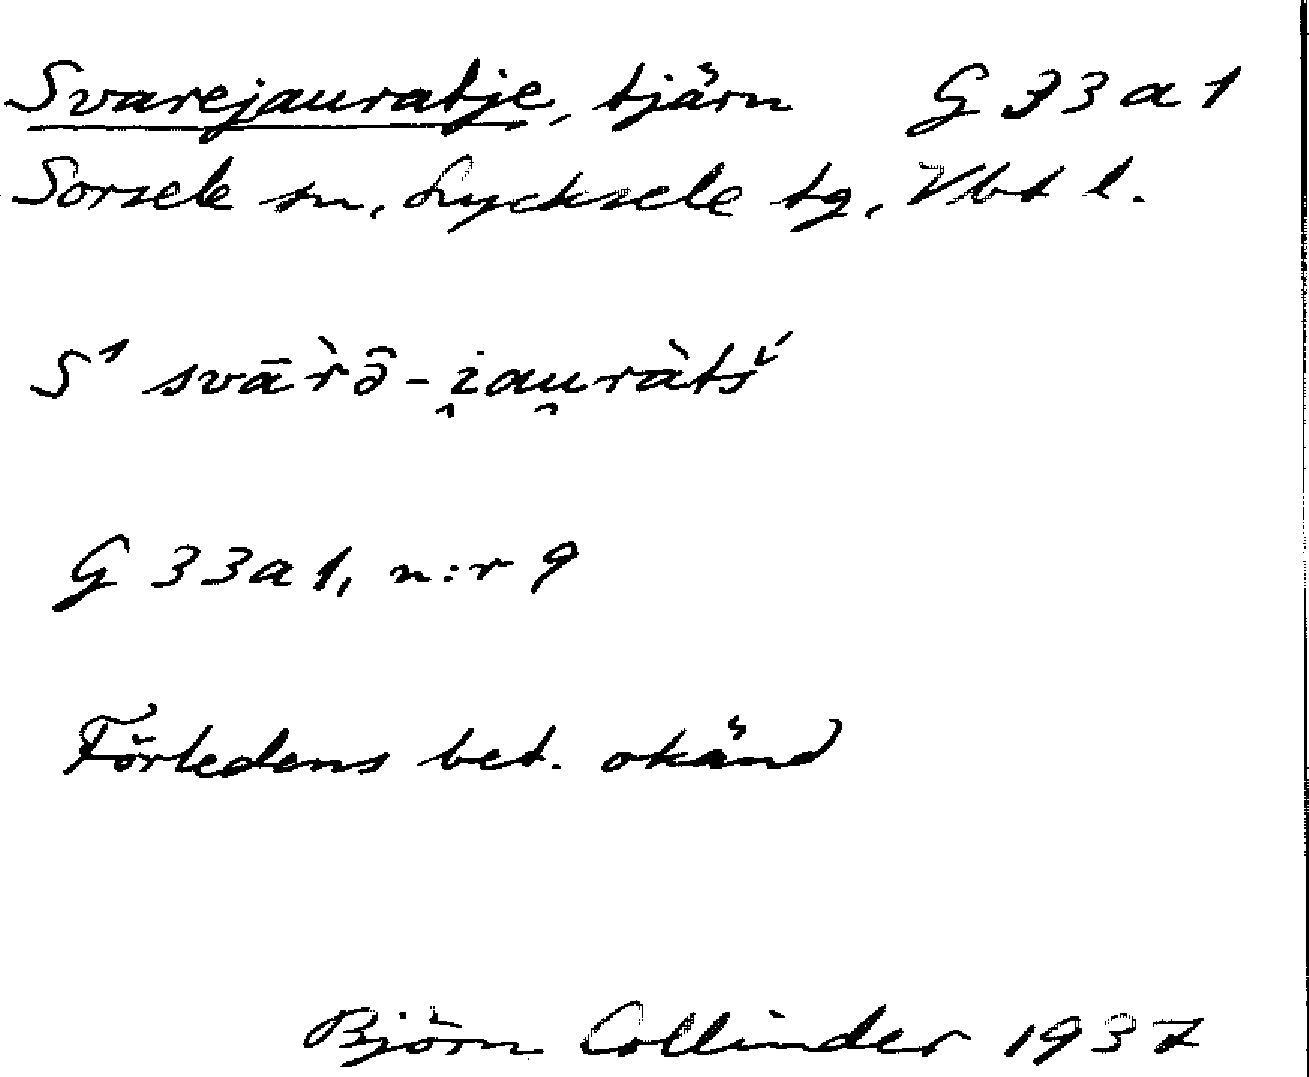 Svarejauratje, tjärn G 33a1
Sorsele sn, Lycksele tg, Vbt l.
S¹ svār̀ə̑̄-i̯au̯ràtš́
G 33a1, n:r 9
Förledens bet. okänd
Björn Collinder 1937